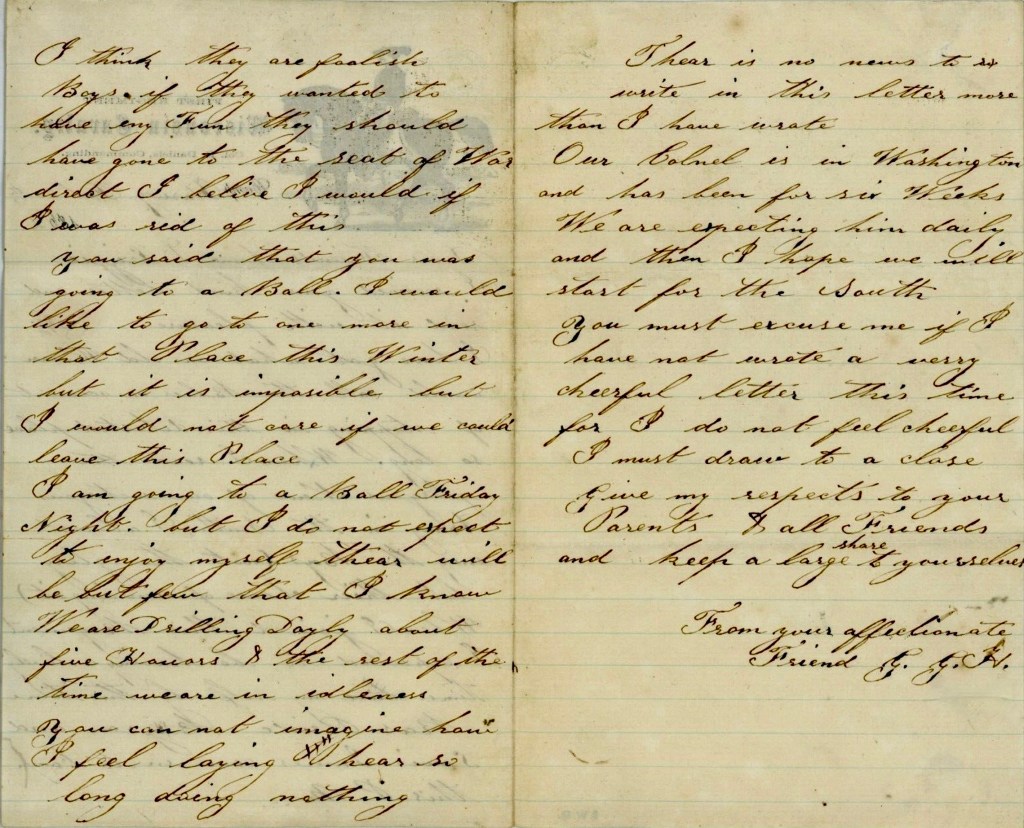 I think they are foolish
Boys. if they wanted to
have eny Fun they should
have gone to the seat of War
direct I belive I would if
I was rid of this
you said that you was
going to a Ball. I would
like to go to one more in
that Place this Winter
but it is imposible but
I would not care if we could
leave this Place
I am going to a Ball Friday
Night. but I do not expect
to enjoy myself thear will
be but few that I know
We are Drilling Dayly about
five Houors & the rest of the
time we are in idleness
you can not imagine how
I feel laying hear so
long doing nothing
Thear is no news to
write in this letter more
than I have wrote
Our Colnel is in Washington
and has been for six Weeks
We are expecting him daily
and then I hope we will
start for the South
You must excuse me if I
have not wrote a verry
cheerful letter this time
for I do not feel cheerful
I must draw to a close
Give my respects to your
Parents & all Friends
and keep a large share to yourselves
From your affectionate
Friend G. G. H.